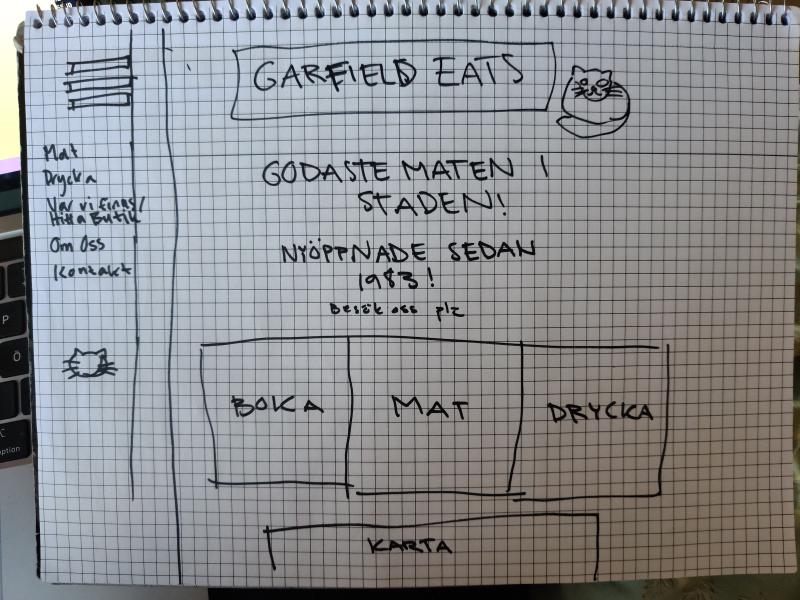 GARFIELD EATS
Mat
Drycka
Var vi finns/
Hitta Butik
Om Oss
Kontakt
GODASTE MATEN I
STADEN!
NYÖPPNADE SEDAN
1983!
Besök oss plz
BOKA
MAT
DRYCKA
KARTA
P
Ö
option